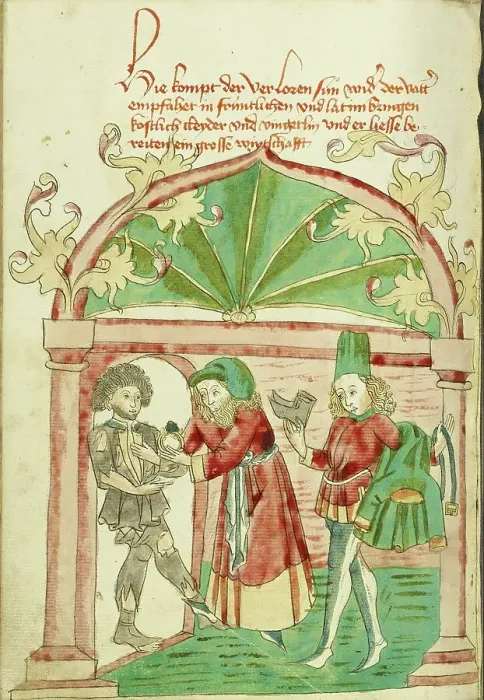 Hie kompt der verloren sun wider der vatter
empfahet in früntlichen vnd lat im bringen
kostlich cleyder vnd vingerlin vnd er liesse be-
reiten ein grosse wirtschafft